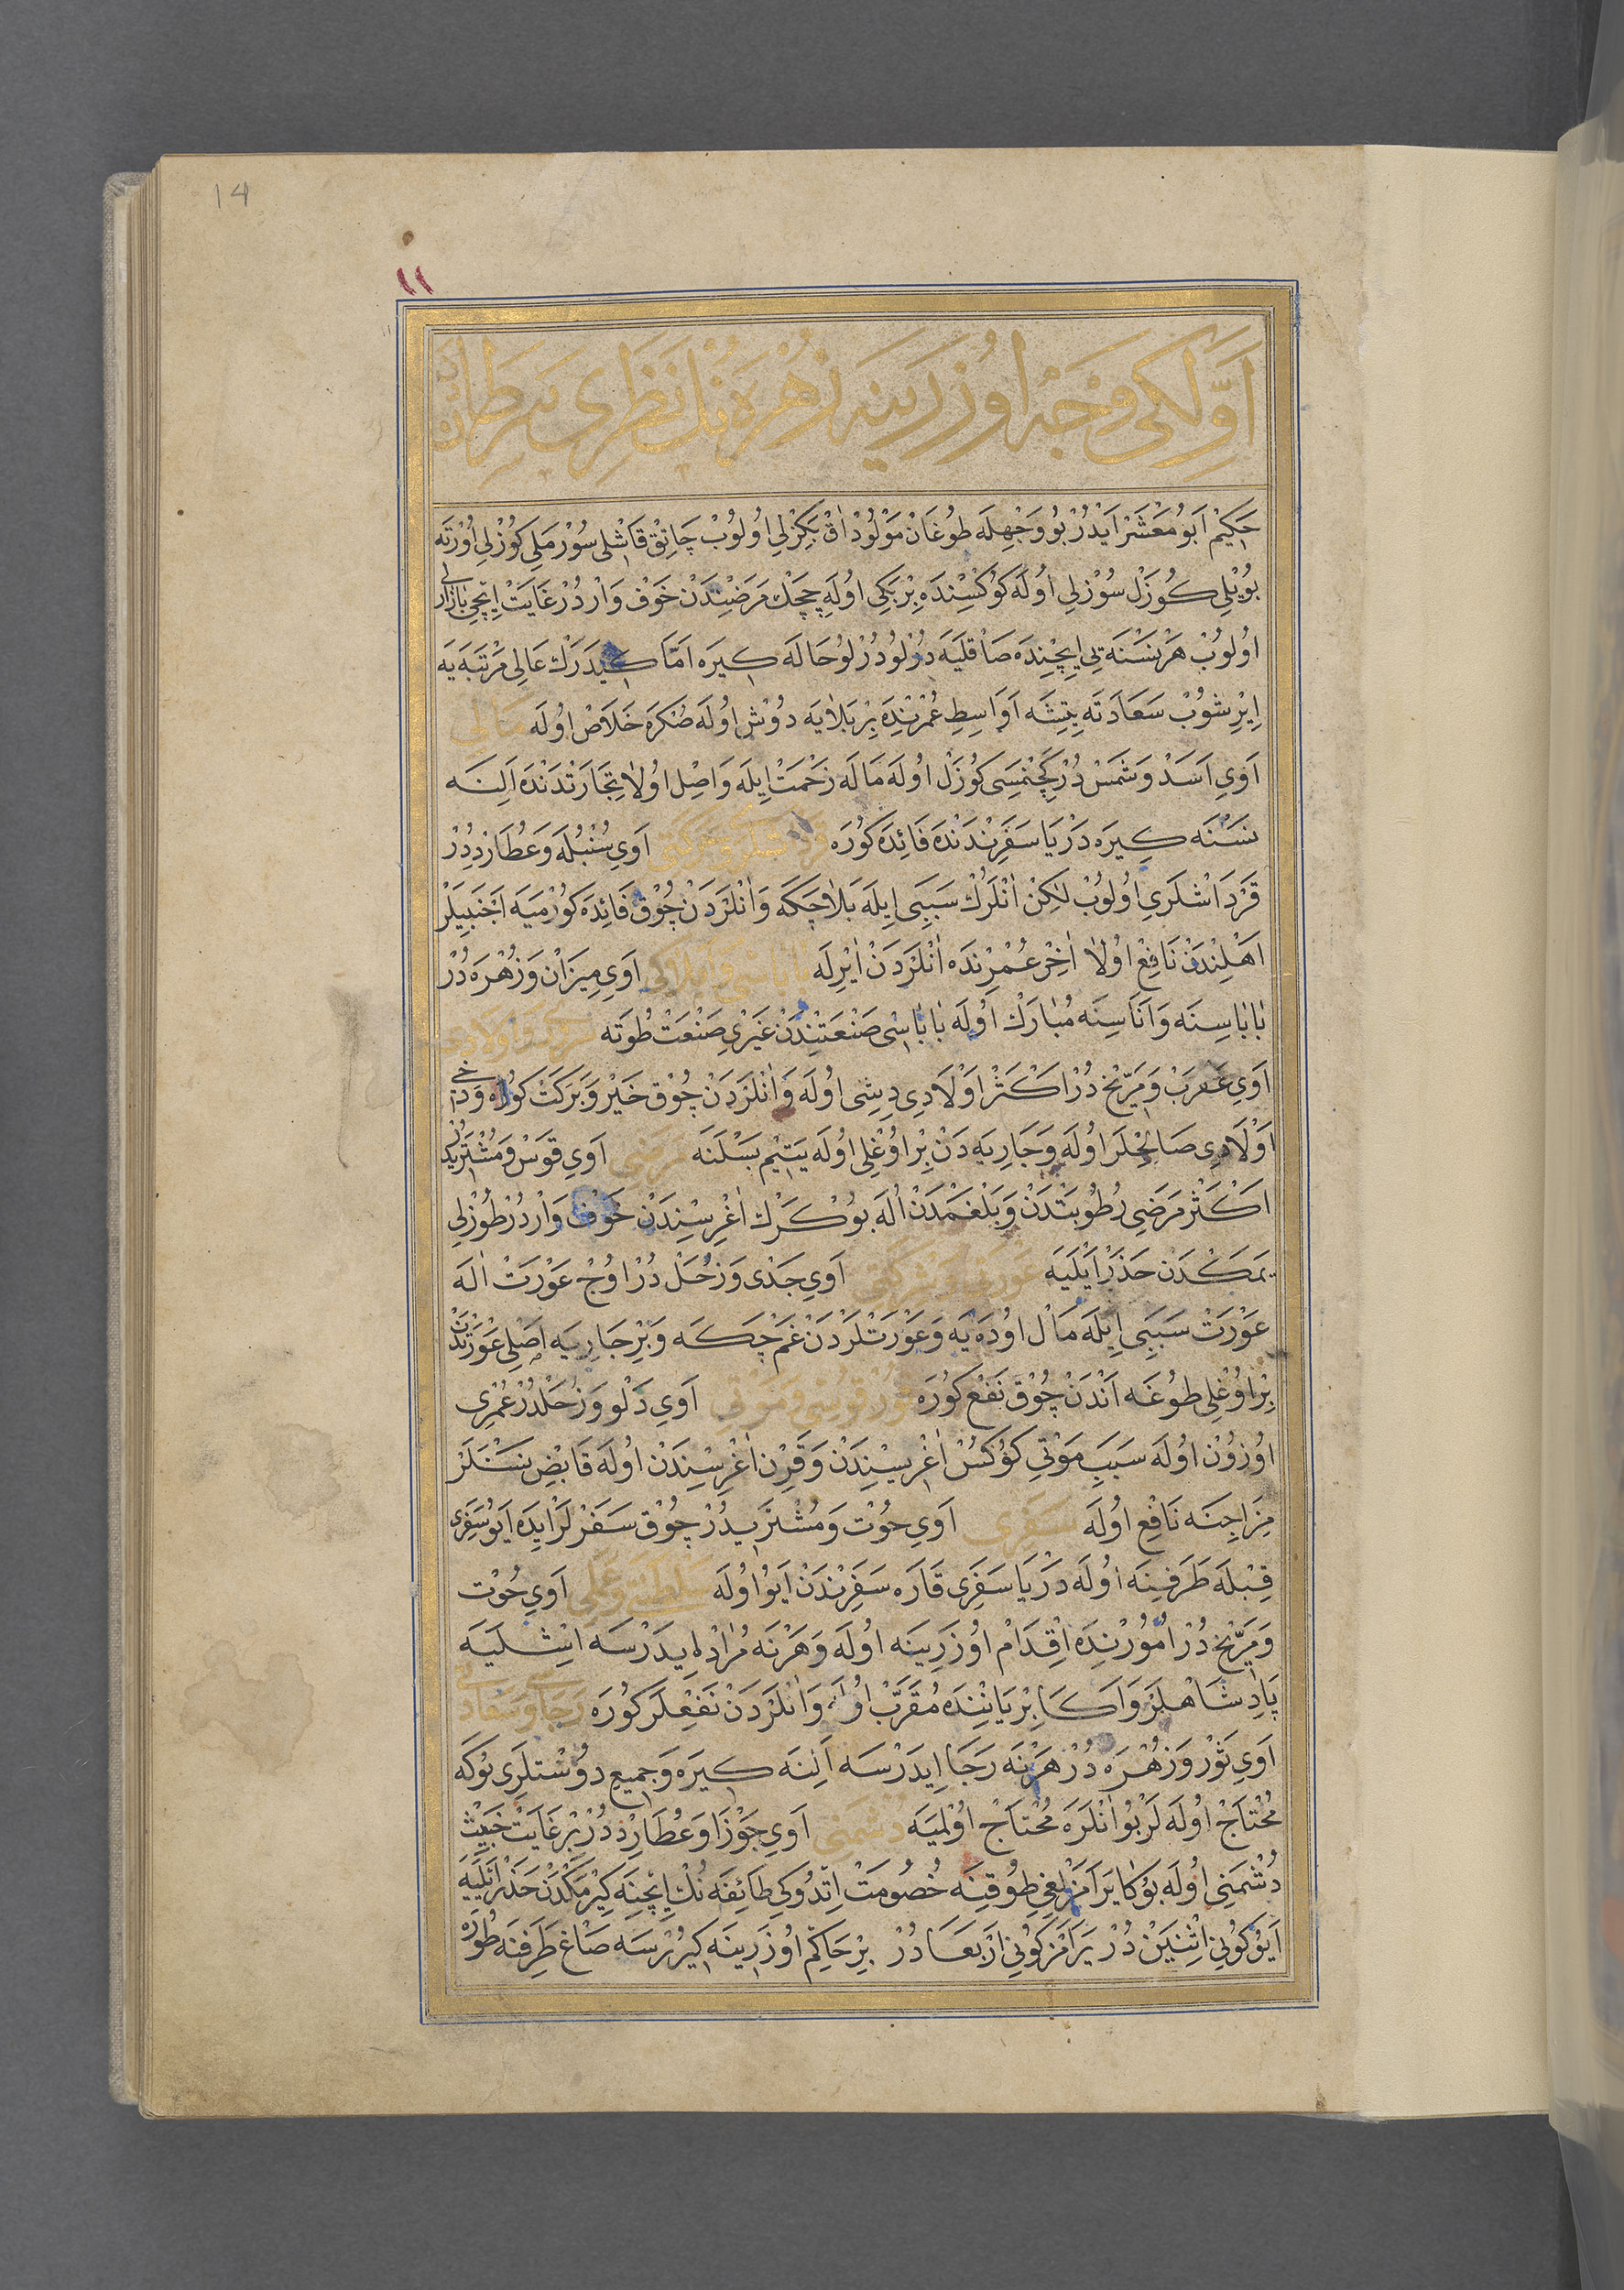 14
١١
اَوَّلكی وَجْه اوُزَرِینَه زُهْرَه نُكْ نَظَرِی سَرَطَانَه
حَكِیْم اَبوُ مَعْشَرْ اَیْدُرْ بوُ وَجْهِلَه طوُغَانْ مَوْلُودْ اٰقْ بَكِزْلِی اوُلوُبْ چَاتِقْ قَاشْلِی سُوُرْمَلِی كوُزْلِی اوُرْتَه
بوُیْلِی كُوزَلْ سُوُزْلِی اوُلَه كوُكْسِنْدَه بِرْ بَكِی اوُلَه چِچَكْ مَرَضِنْدَنْ خَوْف وَارْدُرْ غَایَتْ اِیچِی
اوُلوُبْ هَرْ نَسْنَه یِی اِیچِنْدَه صَاقْلَیَه دُرْلُو دُرْلُو حَالَه كِیرَه اَمَّا كِیدَرَكْ عَالِی مَرْتَبَه یَه
اِیْرِشوُبْ سَعَادَتَه یِتِشَه اَوَاسِطِ عُمْرِنْدَه بِرْ بَلَایَه دوُشْ اوُلَه صُكْرَه خَلَاصْ اوُلَه مَالِی
اَوِی اَسَدْ وَ شَمْسْ دُرْ كَچِنْمَسِی كوُزَلْ اوُلَه مَالَه زَحْمَتْ اِیلَه وَاصِل اوُلَا تِجَارَتْدَنْدَه اَلِنَه
نَسْنَه كِیرَه دَرْیَا سَفَرِنْدَنْدَه فَائِدَه كوُرَه قَرِنْدَشْلَرِی وَ حَرَكَتِی اَوِی سُنْبُلَه وَ عُطَارِدْ دُرْ
قَرْدَاشْلَرِی اوُلوُبْ لٰكِنْ اَنْلَرُكْ سَبَبِی اِیلَه بَلَا چَكَه وَ اَنْلَرْدَنْ چوُقْ فَائِدَه كوُرْمَیَه اَجْنَبِیلَرْ
اَهْلِنْدَنْ نَافِعْ اوُلَا اٰخِرِ عُمْرِنْدَه اَنْلَرْدَنْ اَیْرِلَه بَابَاسِی وَ اَمْلَاكِی اَوِی مِیزَانْ وَ زُهْرَه دُرْ
بَابَاسِنَه وَ اَنَاسِنَه مُبَارَكْ اوُلَه بَابَاسِی صَنْعَتِنْدَنْ غَیْرِی صَنْعَتْ طوُتَه
اَوِی عَقْرَبْ وَ مِرِّیخْ دُرْ اَكْثَرْ اَوْلَادِی دِیشِی اوُلَه وَ اَنْلَرْدَنْ چوُقْ خَیْر وَ بَرَكَتْ كوُرَه وَ دَخِی
اَوْلَادِی صَالِحْلَرْ اوُلَه وَ جَارِیَه دَنْ بِرْ اوُغْلِی اوُلَه یَتِیمْ بَسْلَنَه مَرَضِی اَوِی قَوْس وَ مُشْتَرِیدُرْ
اَكْثَرْ مَرَضِی رُطوُبَتْدَنْ وَ بَلْغَمْدَنْ اُلَه بوُكْرَكْ اٰغْرِسِنْدَنْ خَوْف وَارْدُرْ طوُزْلِی
یَمَكْدَنْ حَذَرْ اَیْلَیَه عَوْرَتِی وَ شِرْكَتِی اَوِی جَدْی وَ زُحَلْ دُرْ اوُچْ عَوْرَتْ اٰلَه
عَوْرَتْ سَبَبِی اِیلَه مَالْ اوُدَه یَه وَ عَوْرَتْلَرْدَنْ غَمْ چَكَه وَ بِرْ جَارِیَه اَصْلِی عَوْرَتْدَنْ
بِرْ اوُغْلِی طوُغَه اَنْدَنْ چوُقْ نَفْعْ كوُرَه خَوْف وَ مَوْتِی اَوِی دَلْو وَ زُحَلْدُرْ عُمْرِی
اوُزوُنْ اوُلَه سَبَبِ مَوْتِی كوُكُسْ اٰغْرِیسِنْدَنْ وَ قَرِنْ اٰغْرِسِنْدَنْ اوُلَه قَابِضْ نَسْنَلَرْ
مِزَاجِنَه نَافِعْ اوُلَه سَفَرِی اَوِی حُوتْ وَ مُشْتَرِیدُرْ چوُقْ سَفَرْلَرْ اِیدَه اَیوُ سَفَرِی
قِبْلَه طَرَفِنَه اوُلَه دَرْیَا سَفَرِی قَارَه سَفَرِنْدَنْ اَیوُ اوُلَه سَلْطَنَتِی وَ عَمَلِی اَوِی حُوتْ
وَ مِرِّیخْ دُرْ اُموُرِنْدَه اِقْدَامْ اوُزَرِینَه اوُلَه وَ هَرْ نَه مُرَادْ اِیدَرْسَه اِشْلَیَه
پَادِشَاهْلَرْ وَ اَكَابِرْ یَانِنْدَه مُقَرَّبْ اوُلَه وَ اَنْلَرْدَنْ نَفْعِلَرْ كوُرَه رَجَاسِی وَ سَعَادَتِی
اَوِی ثَوْر وَ زُهْرَه دُرْ هَرْ نَه رَجَا اِیدَرْسَه اَلِنَه كِیرَه وَ جَمِیعِ دوُسْتلَرِی بوُكَه
مُحْتَاجْ اوُلَه لَرْ بوُ اَنْلَرَه مُحْتَاجْ اوُلْمَیَه دُشْمَنِی اَوِی جَوْزَا وَ عُطَارِدْ دُرْ بِرْ غَایَتْ خَبِیثْ
دُشْمَنِی اوُلَه بوُكَا یَرَامَزْلِغِی طوُقِنَه خُصوُمَتْ اِتْدوُكِی طَائِفَه نُكْ اِیچِنَه كِیرْمَكْدَنْ حَذَرْ اَیْلَیَه
اَیوُ كوُنِی اِثْنَیْنْ دُرْ یَرَامَزْ كوُنِی اَرْبَعَا دُرْ بِرْ حَاكِمْ اوُزَرِینَه كِیرُرْسَه صَاغ طَرَفِنَه طوُرَه